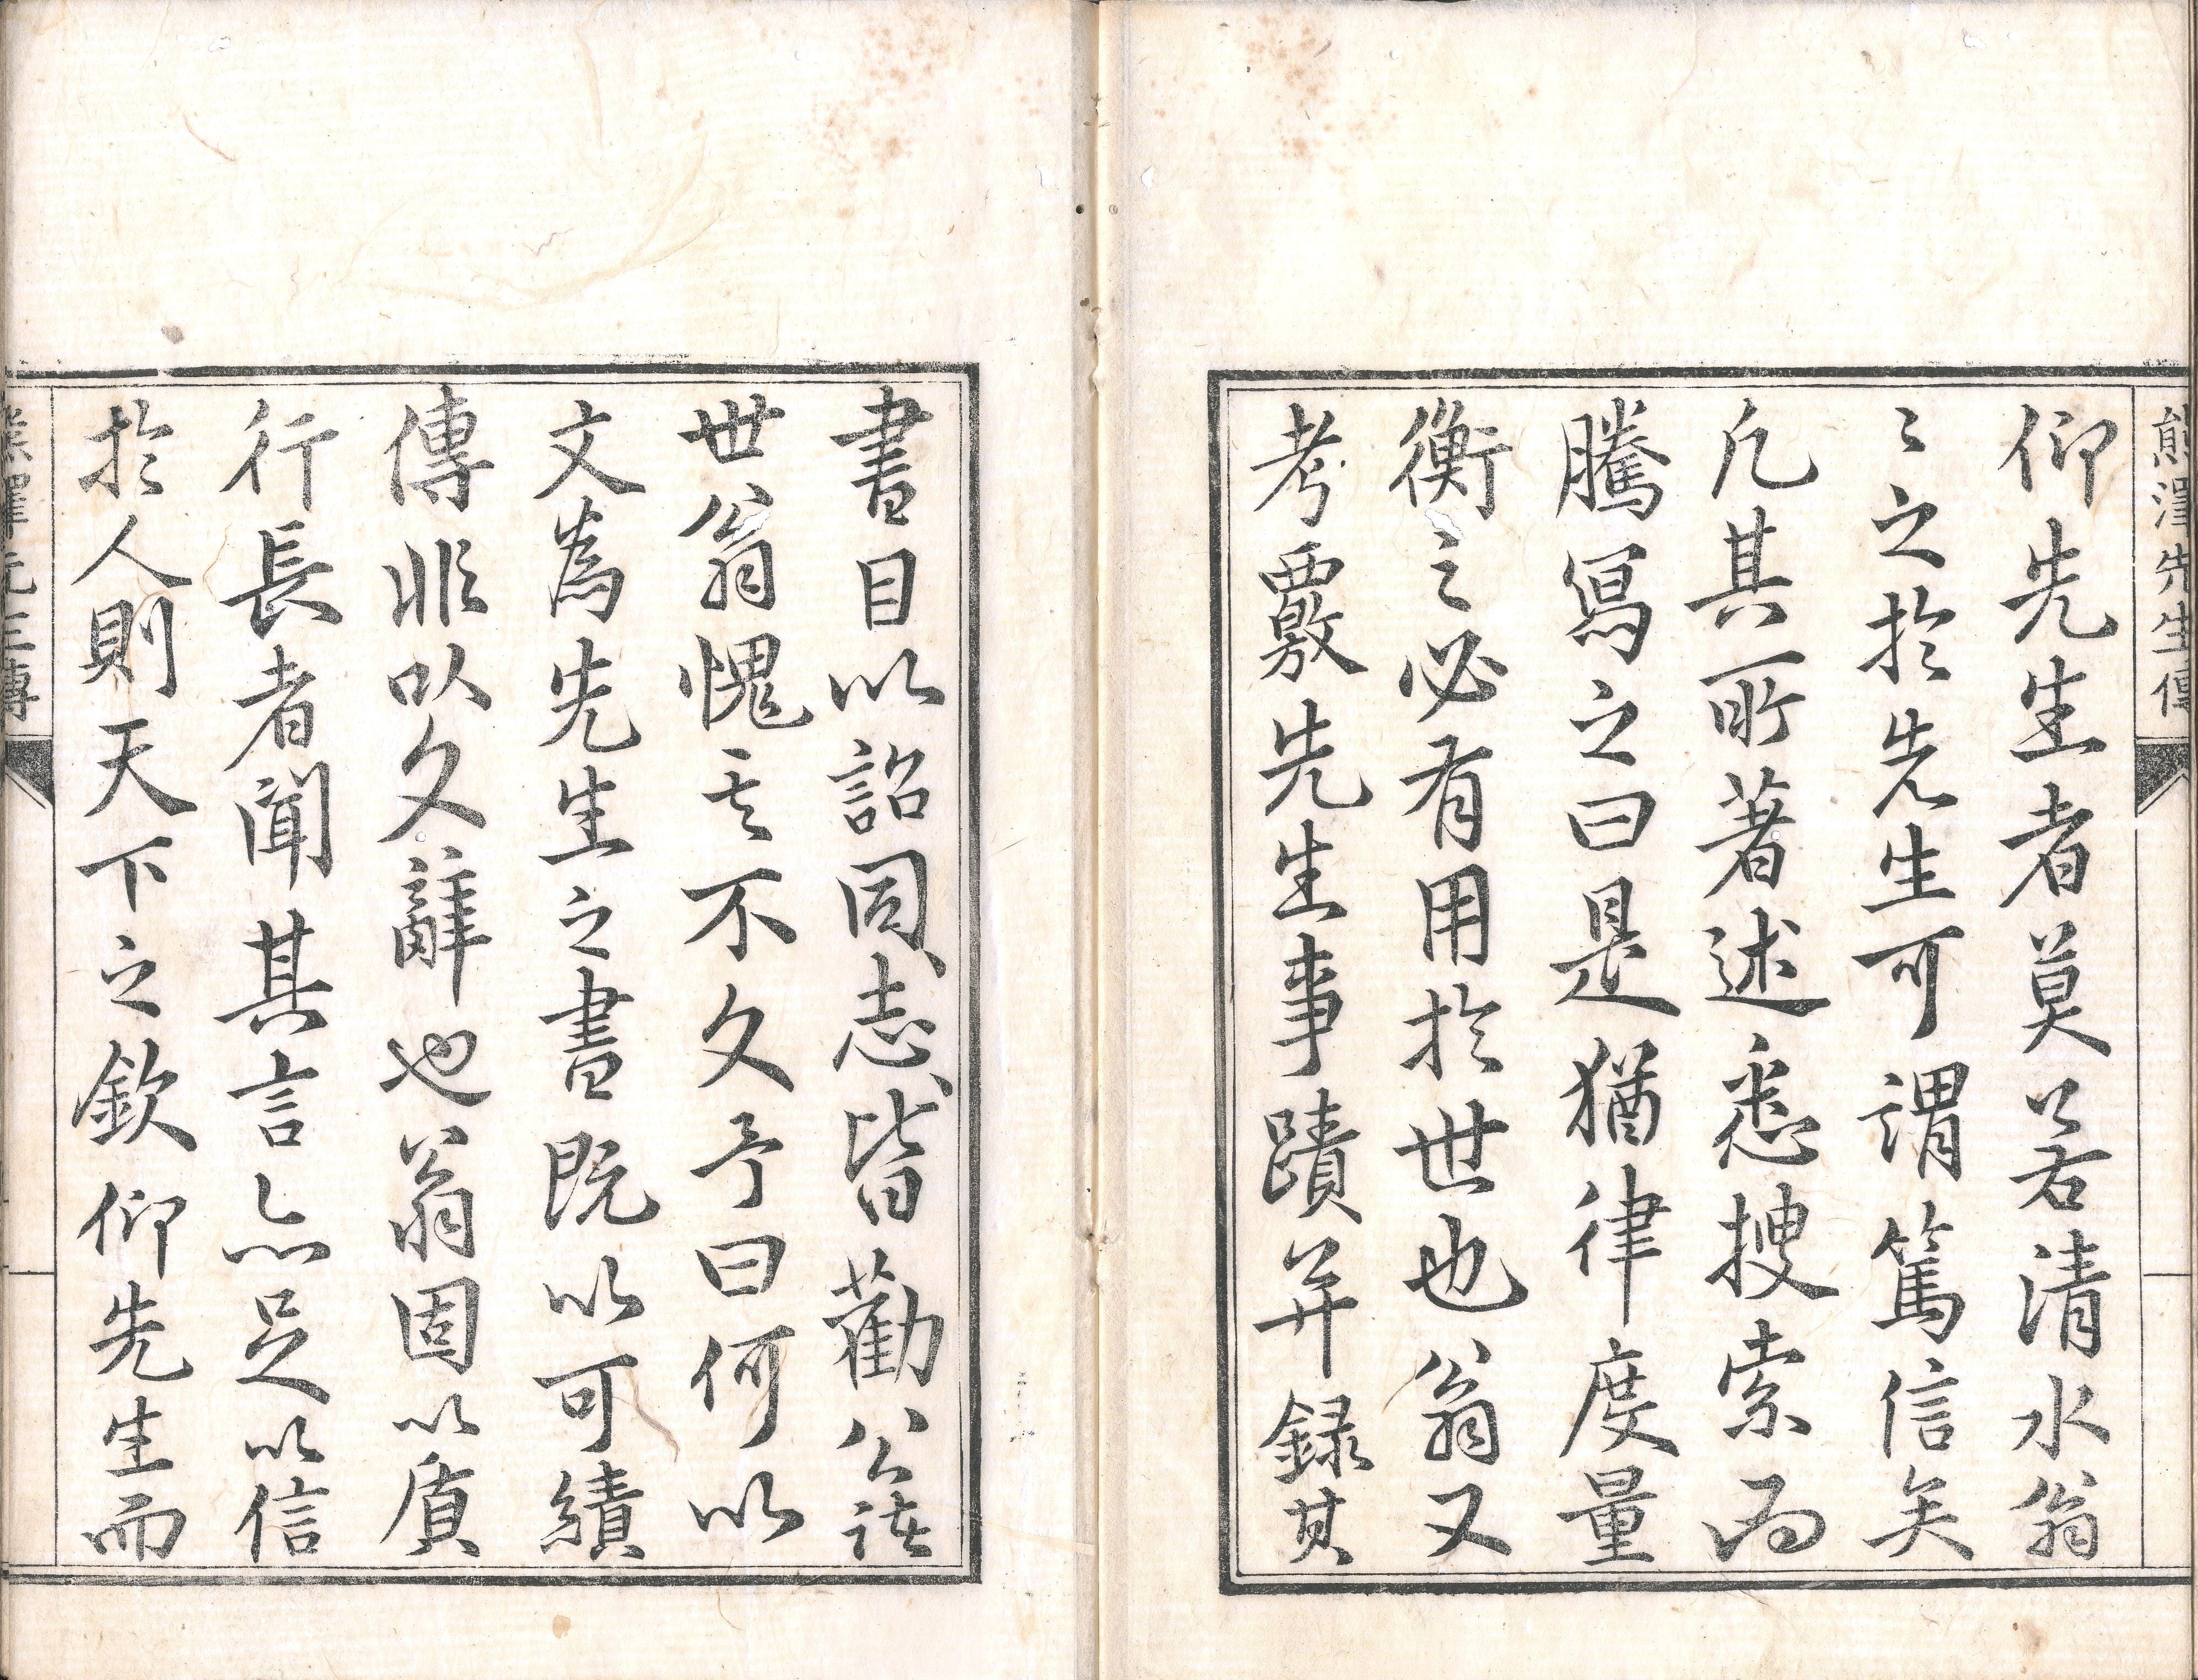 熊澤先生傳
仰先生者莫若清水翁
〻之於先生可謂篤信矣
凡其所著述悉搜索而
騰寫之曰是猶律度量
衡之必有用於世也翁又
考覈先生事蹟并録其
書目以詔同志皆勸公諸
世翁愧其不文予曰何以
文為先生之書既以可續
傳非以文辭也翁固以質
行長者聞其言亦足以信
於人則天下之欽仰先生而
先生傳